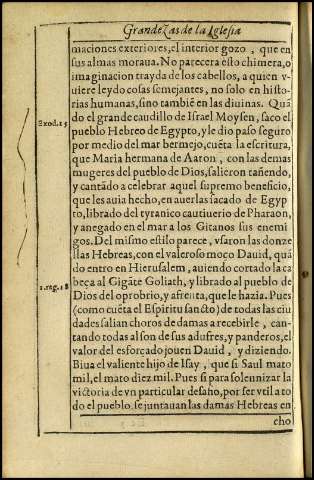 Grandezas de la Iglesia
maciones exteriores, el interior gozo, que en
sus almas moraua. No parecera esto chimera, o
imaginacion trayda de los cabellos, a quien v-
uiere leydo cosas semejantes, no solo en histo-
rias humanas, sino tambiē en las diuinas. Quā
do el grande caudillo de Israel Moysen, saco el
Exod. 15
pueblo Hebreo de Egypto, y le dio paso seguro
por medio del mar bermejo, cuēta la escritura,
que Maria hermana de Aaron, con las demas
mugeres del pueblo de Dios, salieron tañendo,
y cantādo a celebrar aquel supremo beneficio,
que les auia hecho, en auerlas sacado de Egyp
to, librado del tyranico cautiuerio de Pharaon,
y anegado en el mar a los Gitanos sus enemi
gos. Del mismo estilo parece, vsaron las donze
llas Hebreas, con el valeroso moço Dauid, quā
do entro en Hierusalem, auiendo cortado la ca
1. reg. 18
beça al Gigāte Goliath, y librado al pueblo de
Dios del oprobrio, y afrenta, que le hazia. Pues
(como cuēta el Espiritu sancto) de todas las ciu
dades salian choros de damas a recebirle, can-
tando todas al son de sus adufres, y panderos, el
valor del esforçado jouen Dauid, y diziendo.
Biua el valiente hijo de Isay, que si Saul mato
mil, el mato diez mil. Pues si para solennizar la
victoria de vn particular desafio, por ser vtil a to
do el pueblo, se juntauan las damas Hebreas en
cho